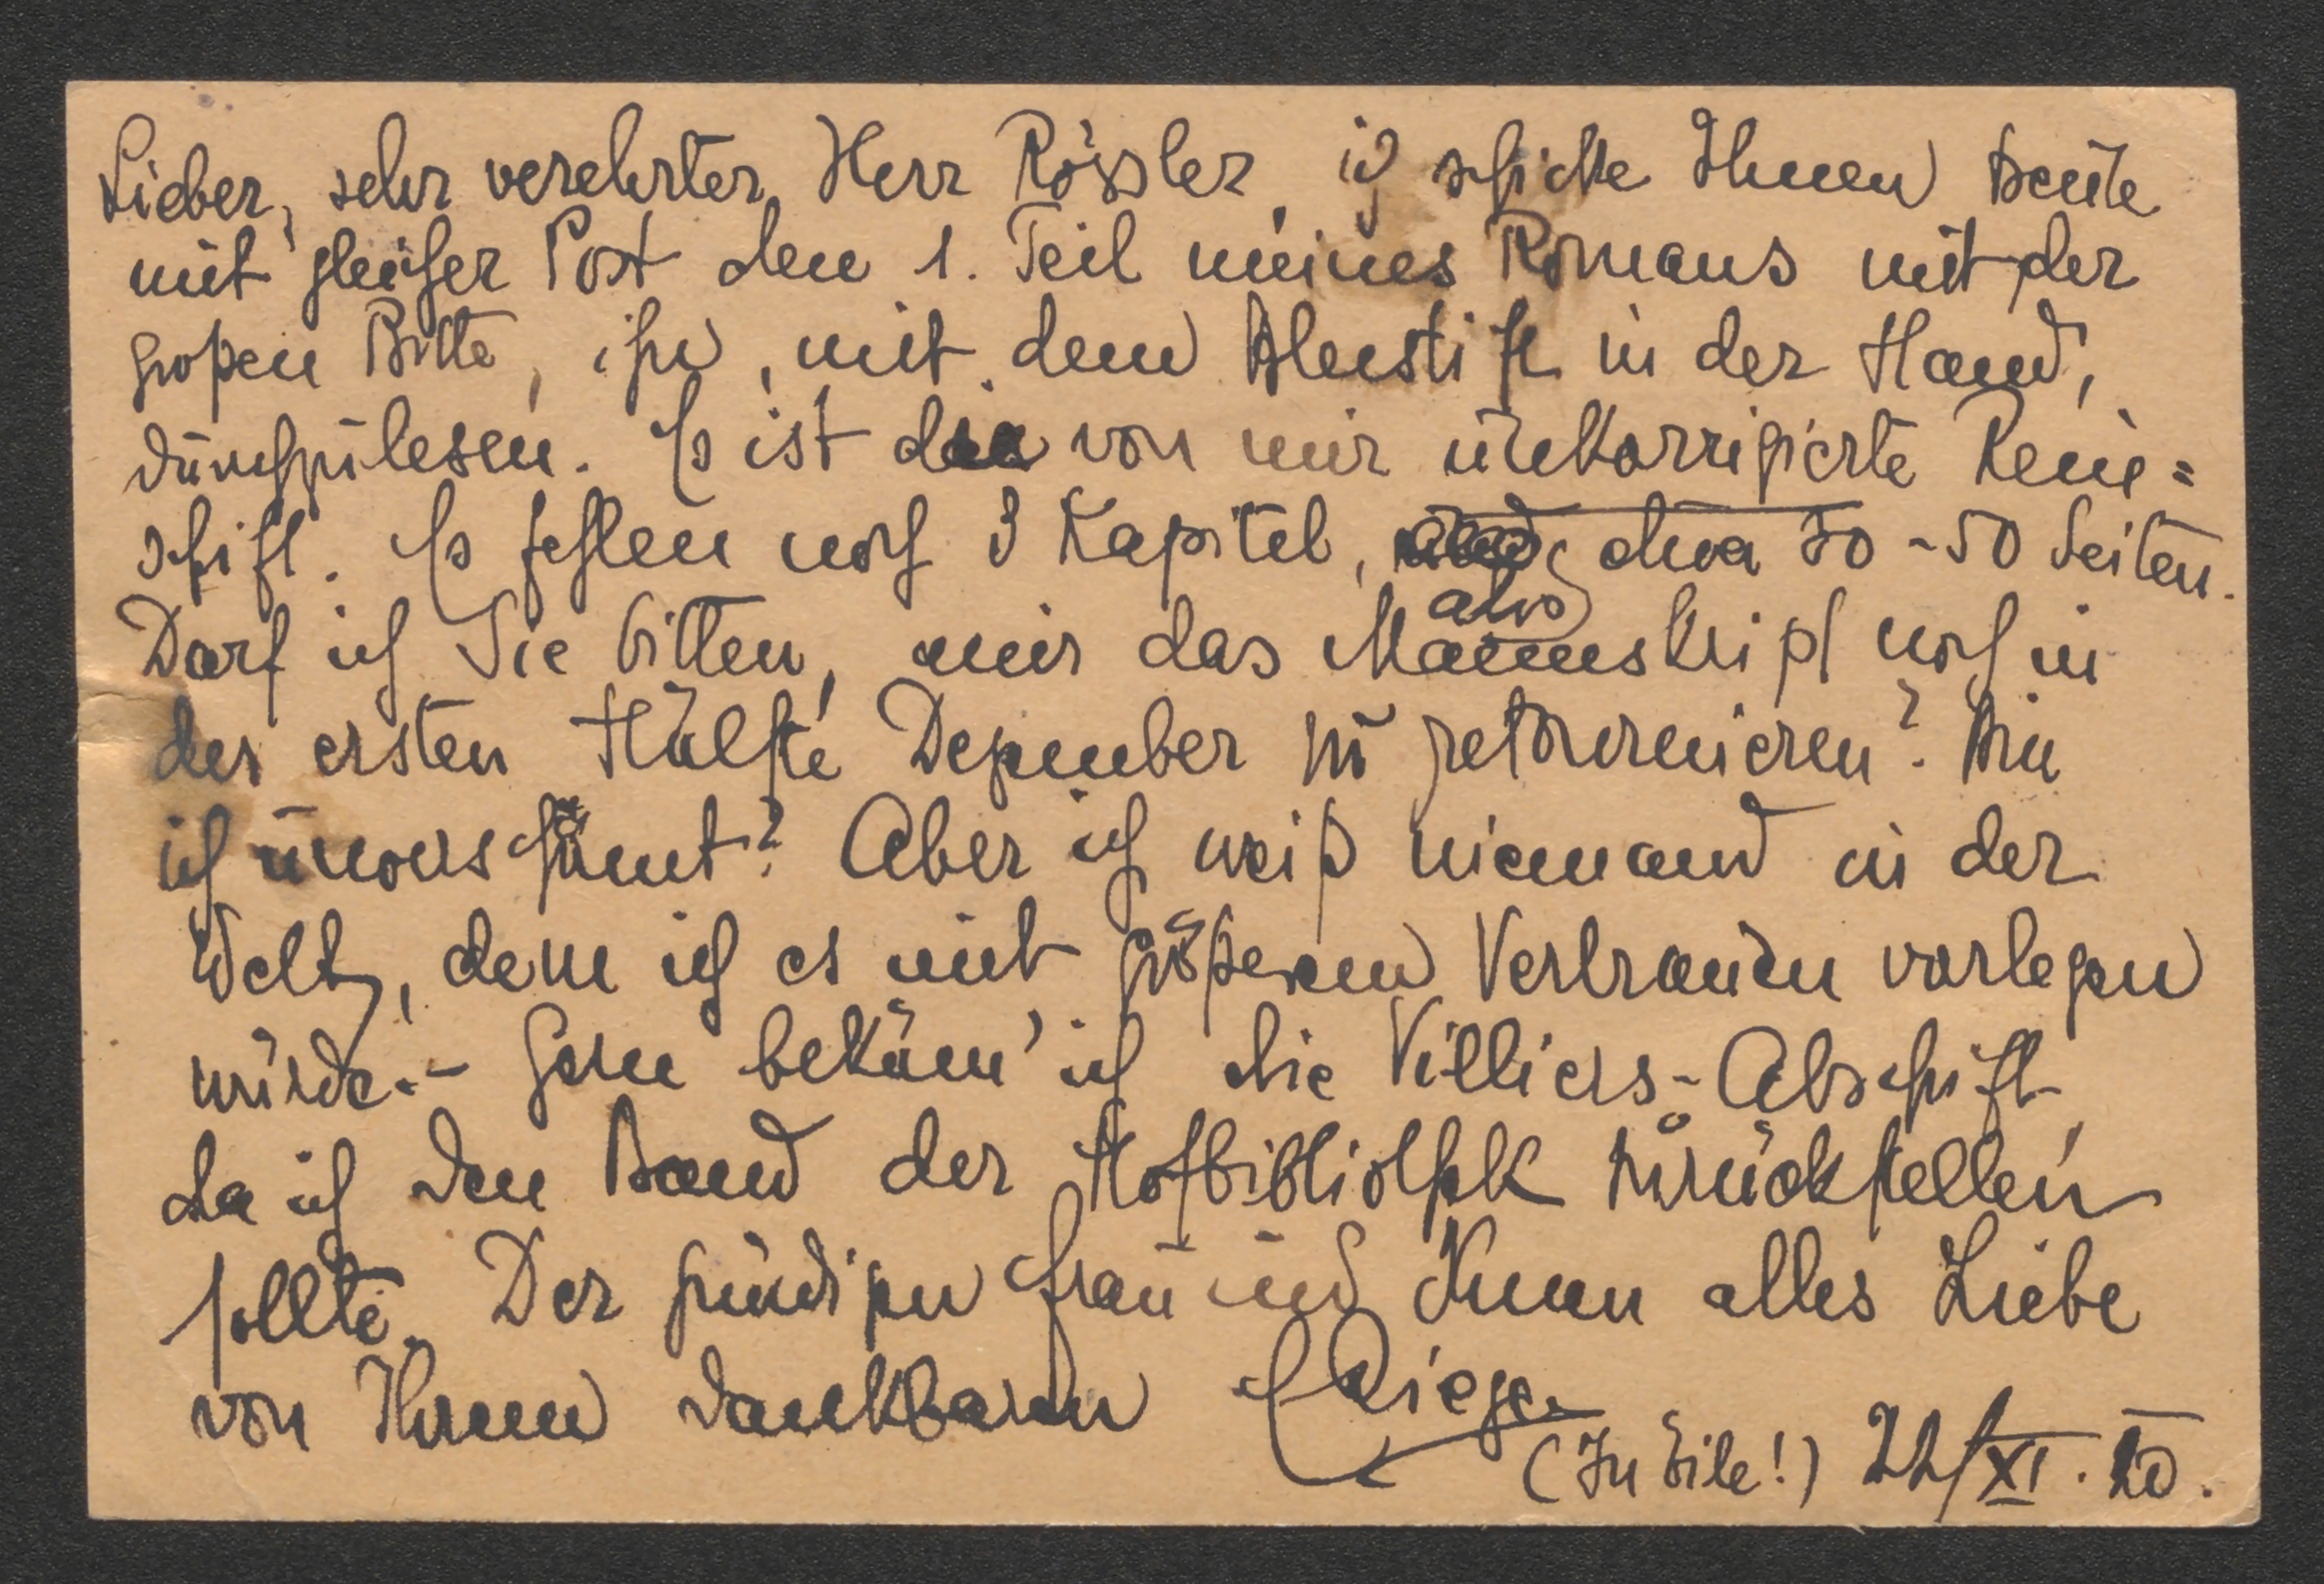 Lieber, sehr verehrter Herr Rössler, ich schicke Ihnen heute
mit gleicher Post den 1. Teil meines Romans mit der
großen Bitte, ihn, mit dem Bleistift in der Hand,
durchzulesen. Es ist die von mir unkorrigierte Rein=
schrift. Es fehlen noch 3 Kapitel, also etwa 30-50 Seiten.
Darf ich Sie bitten, mir das Manuskript noch in
der ersten Hälfte Dezember zu retournieren? Bin
ich unverschämt? Aber ich weiß niemand in der
Welt, dem ich es mit größerem Vertrauen vorlegen
würde. - Gern bekäm' ich die Villiers-Abschrift,
da ich den Band der Hofbibliothek zurückstellen
sollte. Der gnädigen Frau und Ihnen alles Liebe
von Ihrem dankbaren Rieger
(In Eile!) 22/XI. 20.